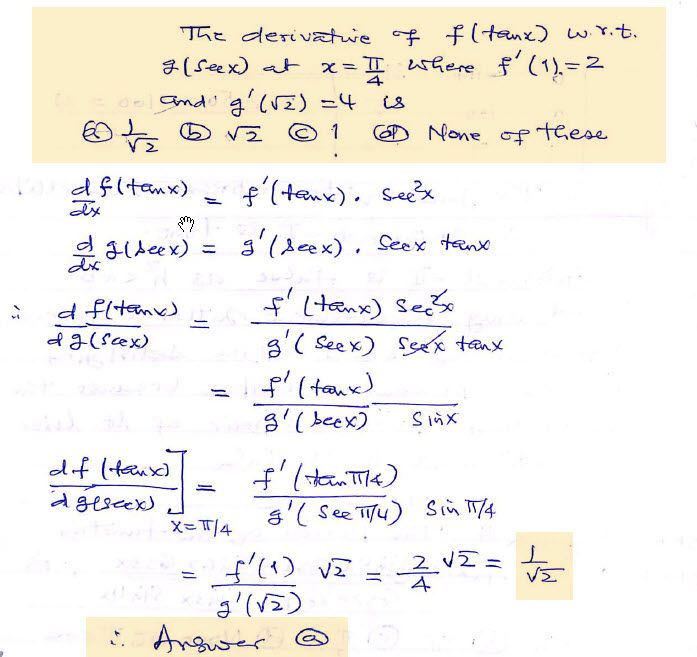 The derivative of f(tanx) w.r.t.
g(secx) at x = π/4 where f'(1) = 2
and g'(√2) = 4 is
ⓐ 1/√2 ⓑ √2 ⓒ 1 ⓓ None of these
d/dx f(tanx) = f'(tanx) . sec²x
d/dx g(secx) = g'(secx) . secx tanx
∴ d f(tanx) / d g(secx) = f'(tanx) sec²x / g'(secx) secx tanx
= f'(tanx) / g'(secx) sinx
d f(tanx) / d g(secx) ] x=π/4 = f'(tan π/4) / g'(sec π/4) sin π/4
= f'(1) / g'(√2) √2 = 2/4 √2 = 1/√2
∴ Answer ⓐ